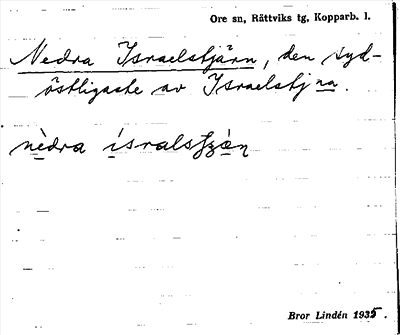 Ore sn, Rättviks tg, Kopparb. l.
Nedra Israelstjärn, den syd-
östligaste av Israelstjna.
nèdra ísralstjɔ̀n
Bror Lindén 1935.